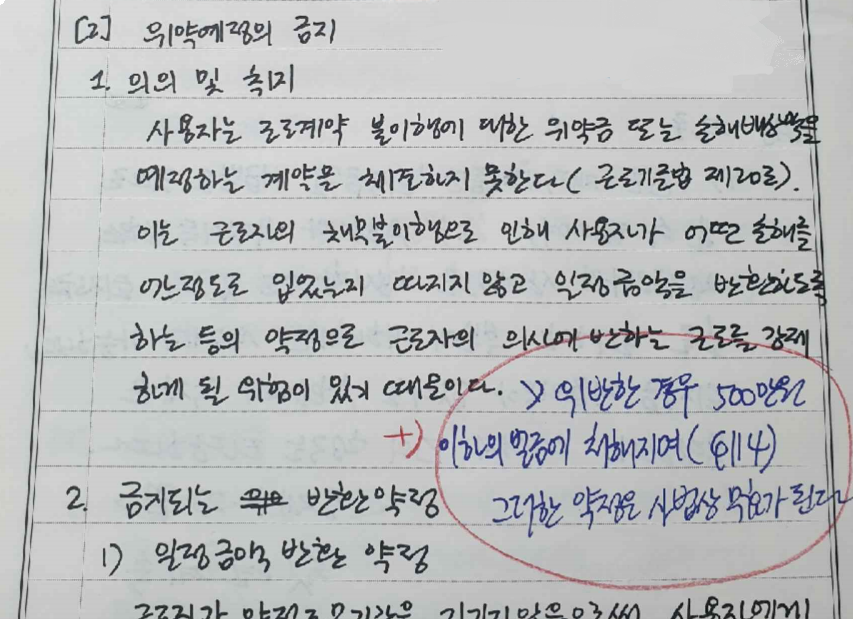 [2] 위약예정의 금지
1. 의의 및 취지
사용자는 근로계약 불이행에 대한 위약금 또는 손해배상액을
예정하는 계약을 체결하지 못한다(근로기준법 제20조).
이는 근로자의 채무불이행으로 인해 사용자가 어떤 손해를
어느정도로 입었는지 따지지 않고 일정 금액을 반환하도록
하는 등의 약정으로 근로자의 의사에 반하는 근로를 강제
하게 될 위험이 있기 때문이다. >> 위반한 경우 500만원
+) 이하의 벌금에 처해지며(§114)
그러한 약정은 사법상 무효가 된다
2. 금지되는 반환약정
1) 일정금액 반환 약정
근로자가 약정근무기간을 지키지 않음으로써 사용자에게